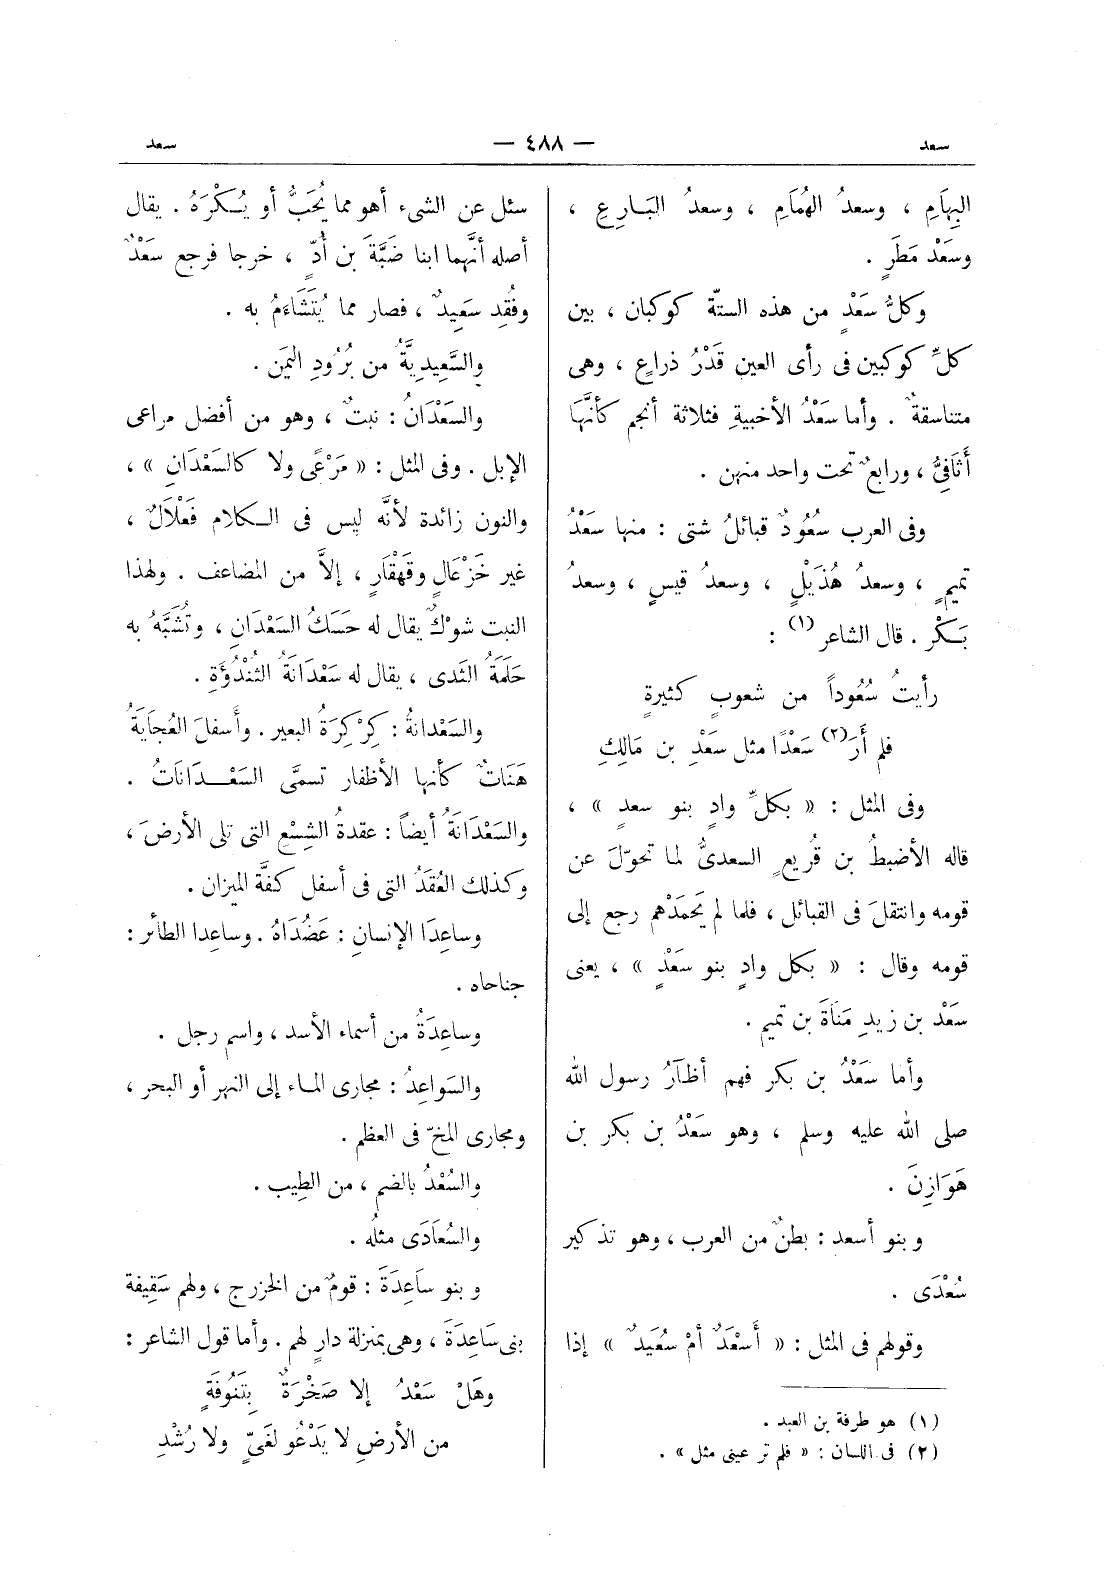 سعد
— ٤٨٨ —
سعد
البِهاَمِ ، وسعدُ الهُمَامِ ، وسعدُ البَـارِعِ ،
وسَعْد مَطَرٍ .
وكلُّ سَعْدٍ من هذه الستّة كوكبان ، بين
كلِّ كوكبين فى رأى العين قَدْرُ ذراعٍ ، وهى
متناسقةٌ . وأما سَعْدُ الأخبيةِ فثلاثة أنجم كأنَّهَا
أثَافِىُّ ، ورابعٌ تحت واحد منهن .
وفى العرب سُعُودٌ قبائلُ شتى : منها سَعْدُ
تميمٍ ، وسعدُ هُذَيْلٍ ، وسعدُ قيسٍ ، وسعدُ
بَـكْر . قال الشاعر (١) :
رأيتُ سُعُوداً من شعوبٍ كثيرةٍ
فلم أَرَ (٢) سَعْدًا مثل سَعْدِ بن مَالِكِ
وفى المثل : « بكلِّ وادٍ بنو سعدٍ » ،
قاله الأضبطُ بن قُريعٍ السعدىُّ لما تحوّلَ عن
قومه وانتقلَ فى القبائل ، فلما لم يَحمَدْهم رجع إلى
قومه وقال : « بكل وادٍ بنو سَعْدٍ » ، يعنى
سَعْد بن زيدِ مَنَاةَ بن تميم .
وأما سَعْدُ بن بكر فهم أظآرُ رسول الله
صلى الله عليه وسلم ، وهو سَعْدُ بن بكر بن
هَوَازِنَ .
وبنو أسعد : بطنٌ من العرب ، وهو تذكير
سُعْدَى .
وقولهم فى المثل : « أَسْعَدٌ أمْ سُعَيدٌ » إذا
(١) هو طرفة بن العبد .
(٢) فى اللسان : « فلم تر عينى مثل » .
سئل عن الشىء أهو مما يُحَبُّ أو يُـكْرَهُ . يقال
أصله أنَّهما ابنا ضَبَّةَ بن أُدٍّ ، خرجا فرجع سَعْدٌ
وفُقِد سَعِيدٌ ، فصار مما يُتَشَاءَمُ به .
والسَّعِيدِيَّةُ من بُرُودِ اليَمَن .
والسَعْدَانُ : نبتٌ ، وهو من أفضل مراعى
الإبل . وفى المثل : « مَرْعًى ولا كالسَعْدَانِ » ،
والنون زائدة لأنَّه ليس فى الـكلام فَعْلَالٌ ،
غير خَزْعَالٍ وقَهقْارٍ ، إلاَّ من المضاعف . ولهذا
النبت شوْكٌ يقال له حَسَكُ السَعْدَانِ ، وتُشَبَّهُ به
حَلَمَةُ الثَدى ، يقال له سَعْدَانَةُ الثُنْدُوَّةِ .
والسَعْدانةُ : كِرْكِرَةُ البعير . وأسفلَ العُجَايَةُ
هَنَاتٌ كأنها الأظفار تسمَّى السَعْـدَانَاتُ .
والسَعْدَانَةُ أيضاً : عقدةُ الشِسْعِ التى تلى الأرضَ ،
وكذلك العُقَدُ التى فى أسفل كفَّة الميزان .
وساعِدَا الإنسانِ : عَضُدَاهُ . وساعِدا الطائر :
جناحاه .
وساعِدَةُ من أسماء الأسد ، واسم رجل .
والسَواعِدُ : مجارى المـاء إلى النهر أو البحر ،
ومجارى المخّ فى العظم .
والسُعْدُ بالضم ، من الطِيب .
والسُعاَدَى مثلُه .
وبنو ساَعِدَةَ : قومٌ من الخزرج ، ولهم سَقِيفة
بنى سَاعِدَةَ ، وهى بمنزلة دارٍ لهم . وأما قول الشاعر :
وهَلْ سَعْدُ إلا صَخْرَةٌ بِتَنُوفَةٍ
من الأرضِ لا يَدْعُو لغَىٍّ ولا رُشْدِ